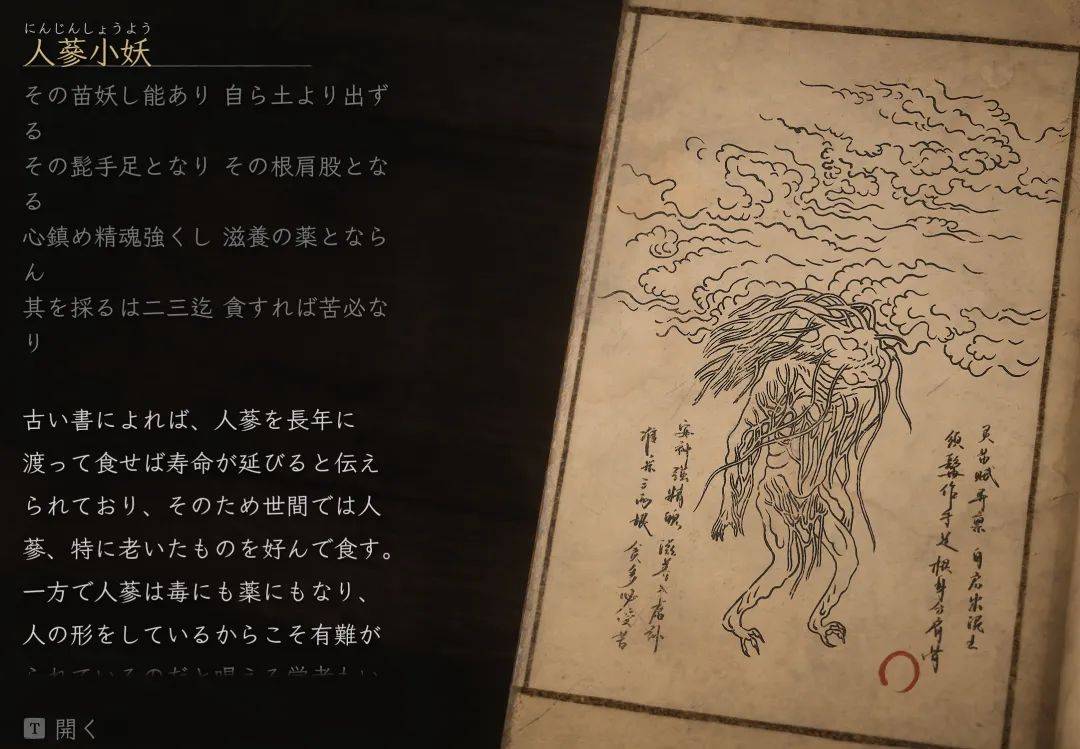 にんじんしょうよう
人蔘小妖
その苗妖し能あり 自ら土より出ず
る
その髭手足となり その根肩股とな
る
心鎮め精魂強くし 滋養の薬となら
ん
其を採るは二三迄 貪すれば苦必な
り
古い書によれば、人蔘を長年に
渡って食せば寿命が延びると伝え
られており、そのため世間では人
蔘、特に老いたものを好んで食す。
一方で人蔘は毒にも薬にもなり、
人の形をしているからこそ有難が
られているのだと唱える学者もい
T 開く
灵苗赋异禀 自启出泥土
作手足 根茎分肩
安神强精魄 滋养
三两根 贪多必受苦